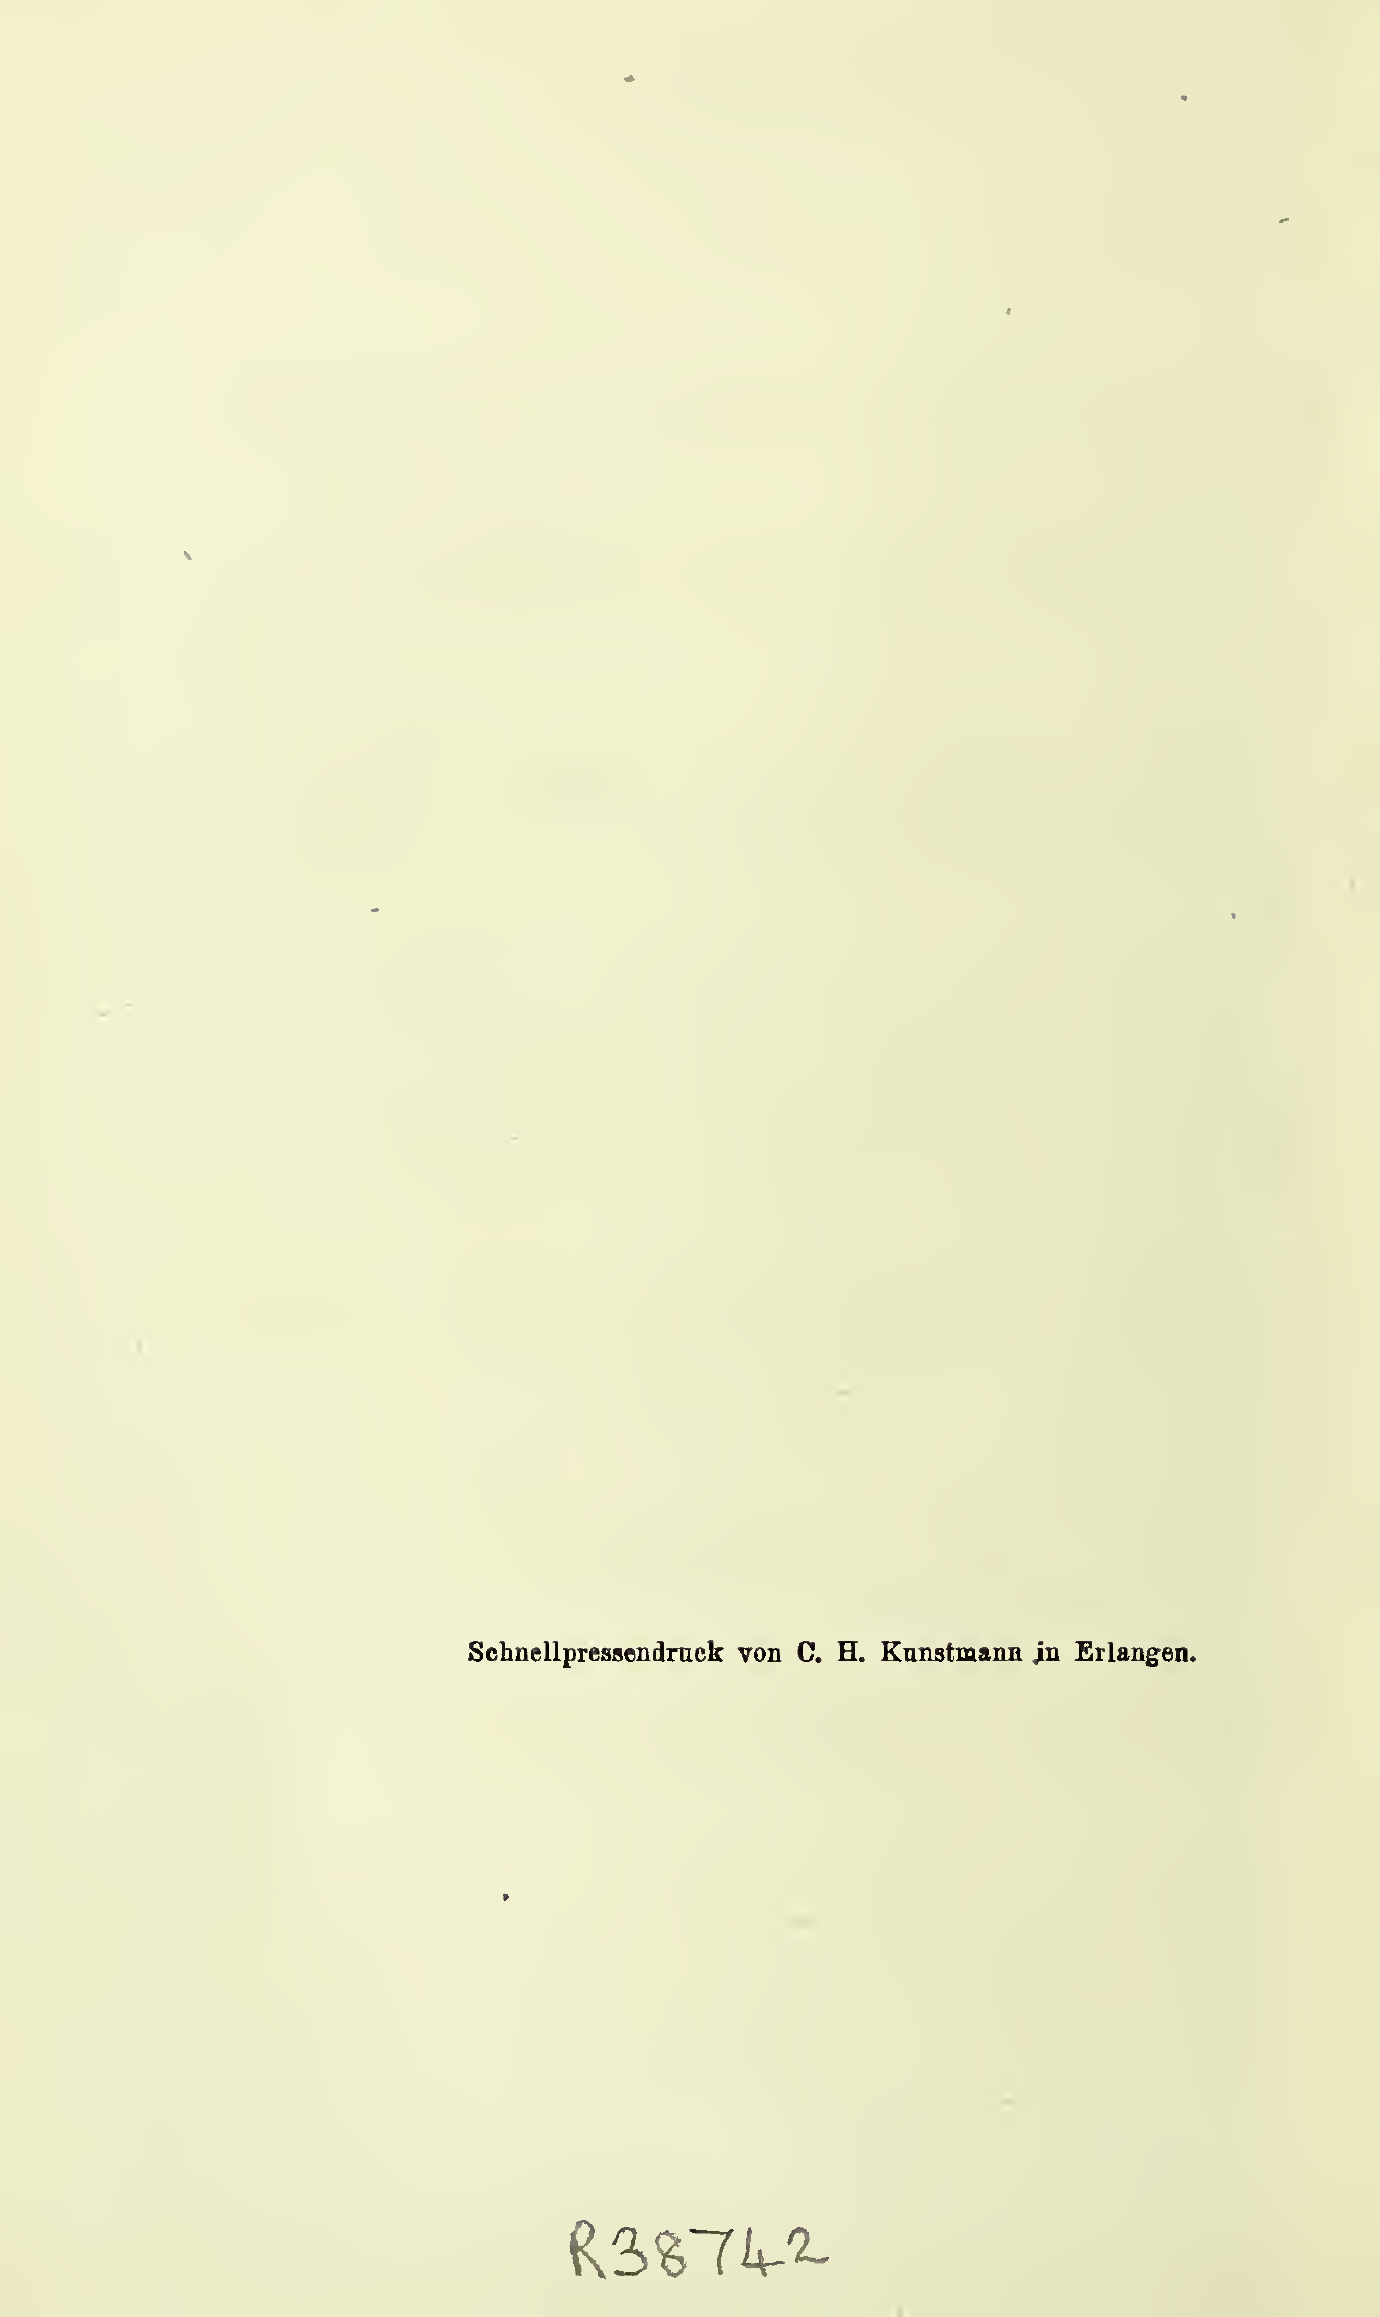 Schnellpressendruck von C. H. Kunstmann in Erlangen.
R38742